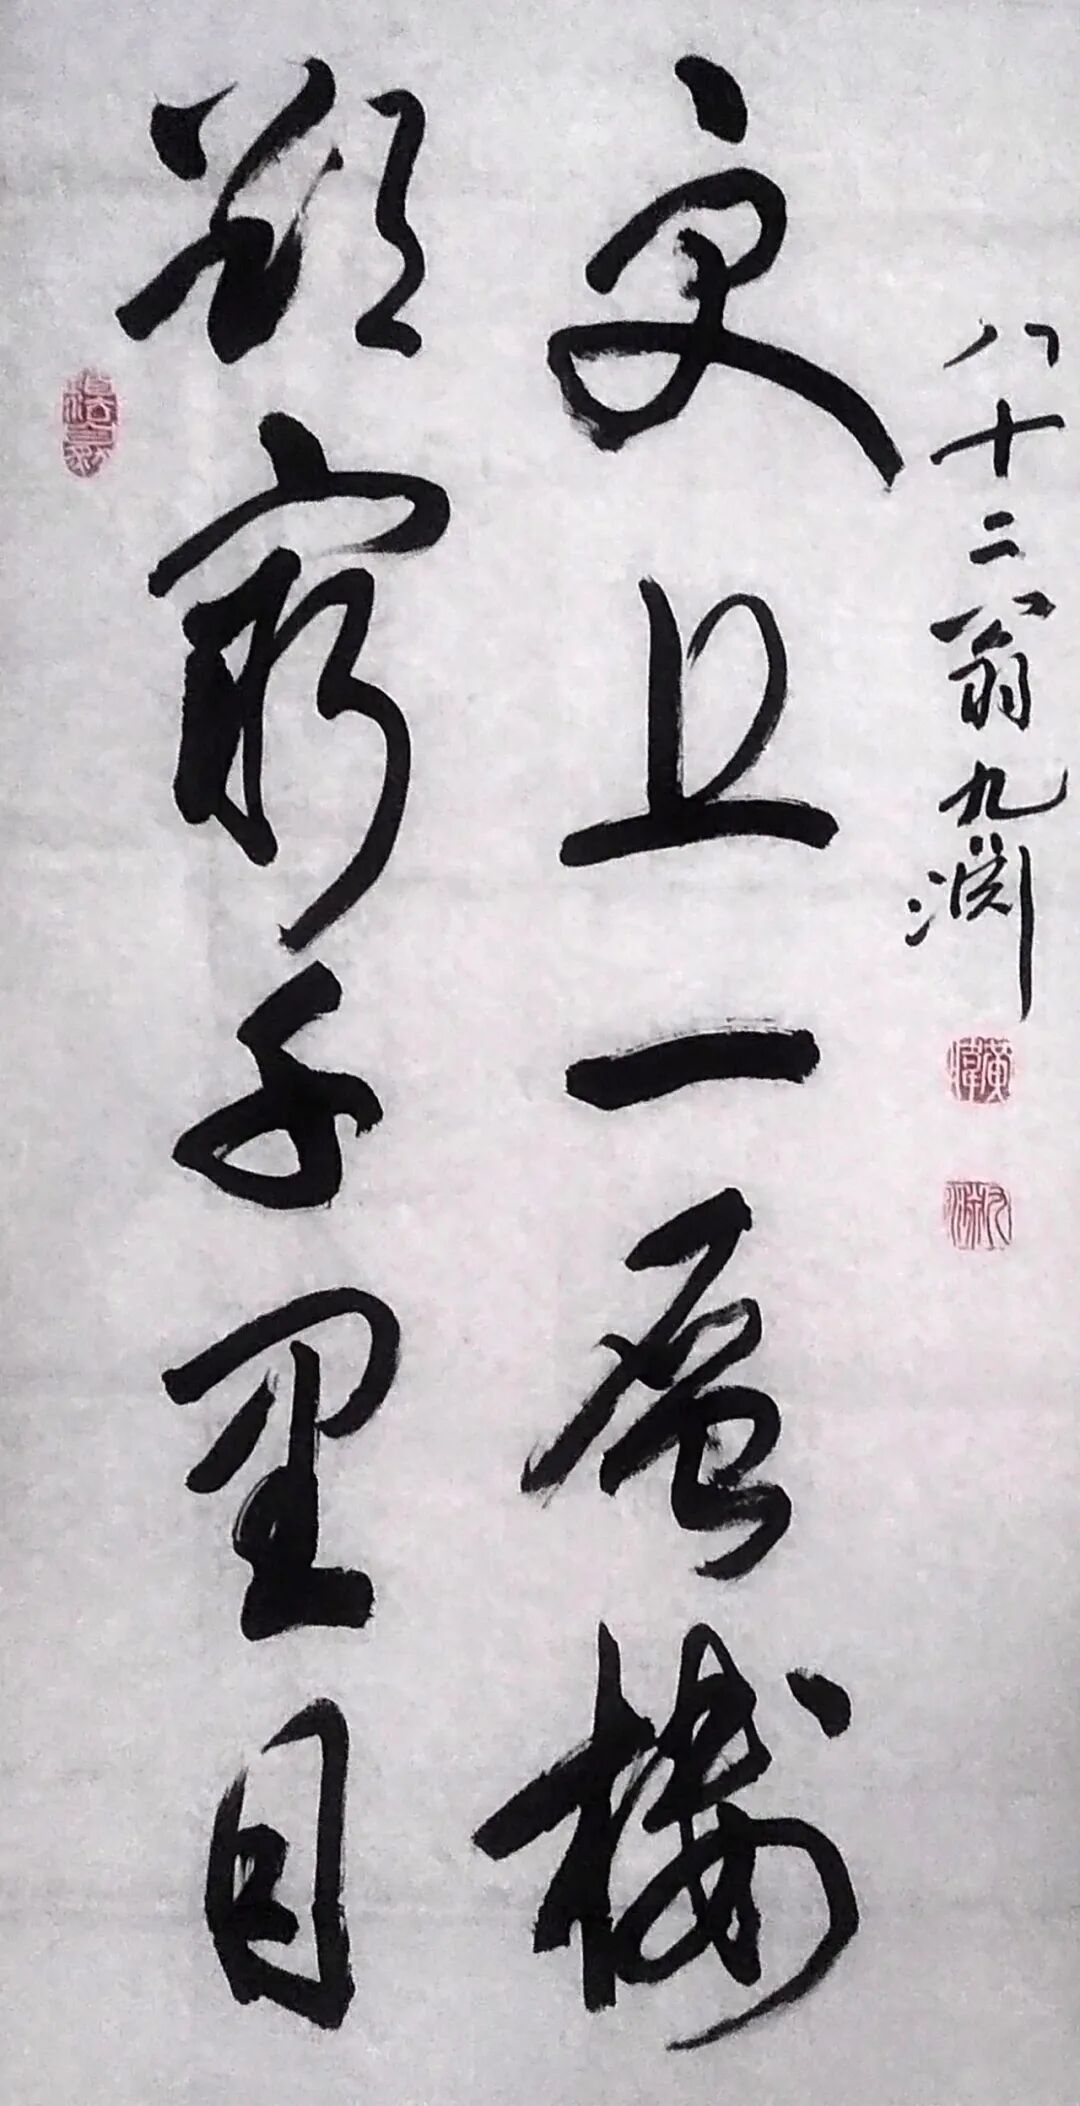 欲窮千里目
更上一層樓
八十二翁九渊